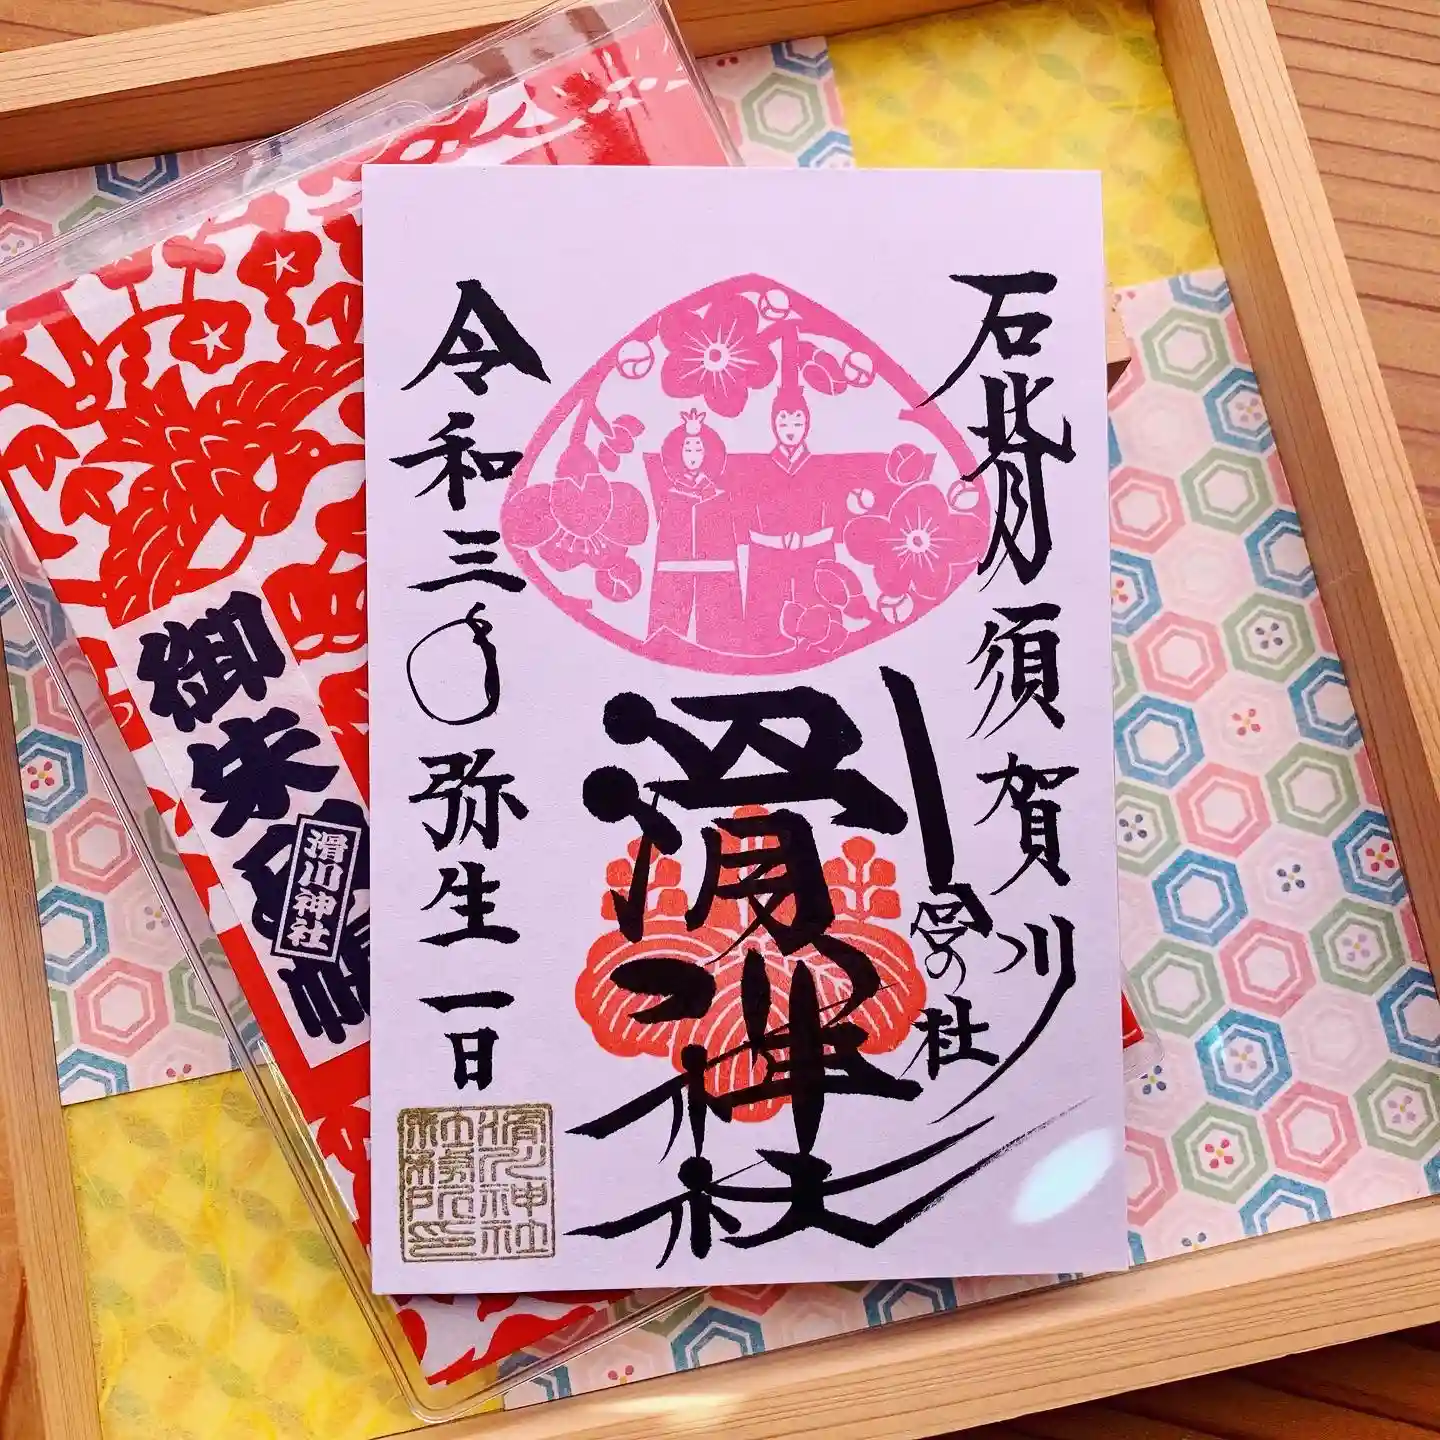 石背須賀川
宮の杜
滑川神社
令和三
弥生一日
滑川神社
社務所印
御朱印帳
滑川神社